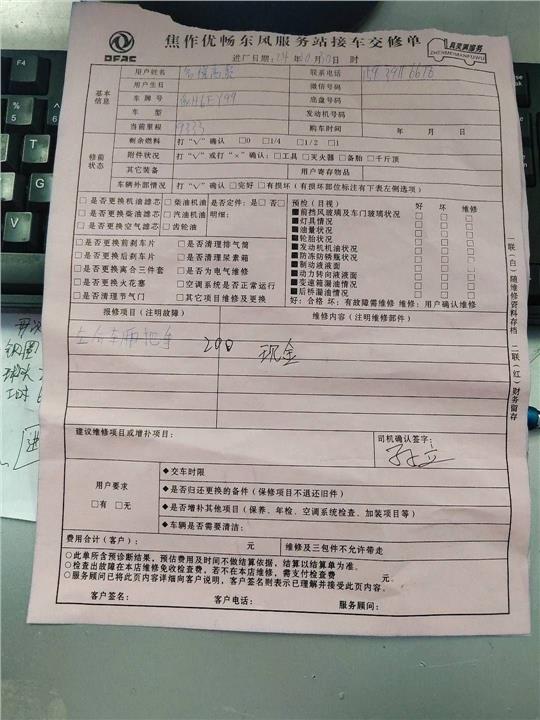 DFAC
焦作优畅东风服务站接车交修单
真芙满服务
ZHENMEIMANFUWU
进厂日期: 24 年 10 月 30 日 时
基本信息
用户姓名 联系电话
用户生日 微信号码
车牌号 底盘号码
车型 发动机号码
当前里程 9333 购车时间 年 月 日
修前状态
剩余燃料 打“√”确认 □0 □1/4 □1/2 □1
附件状况 打“√”或打“×”确认: □工具 □灭火器 □备胎 □千斤顶
其它装备 用户寄存物品
车辆外部情况 打“√”确认 □完好 □有损坏(有损坏部位标注有下表左侧选项)
□是否更换机油滤芯 □柴油机油 □是否定件: 是□ 否□
□是否更换柴油滤芯 □汽油机油 明细:
□是否更换空气滤芯 □齿轮油
□是否更换前刹车片 □是否清理排气筒
□是否更换后刹车片 □是否清理尿素箱
□是否更换离合三件套 □是否为电气维修
□是否更换火花塞 □空调系统是否正常运行
□是否清理节气门 □其它项目维修及更换
预检(目视) 好 坏 维修
■前挡风玻璃及车门玻璃状况 □ □ □
■灯具情况 □ □ □
■油量状况 □ □ □
■轮胎状况 □ □ □
■发动机机油状况 □ □ □
■防冻防锈瓶状况 □ □ □
■制动液液面 □ □ □
■动力转向液液面 □ □ □
■变速箱漏油情况 □ □ □
■后桥漏油情况 □ □ □
好: 合格 坏: 有故障需维修 维修: 用户确认维修
报修项目(注明故障) 维修内容(注明维修部件)
200 现金
建议维修项目或增补项目:
司机确认签字:
用户要求
□有 □无
◆交车时限
◆是否归还更换的备件(保修项目不退还旧件)
◆是否增补其他项目(保养、年检、空调系统检查、加装项目等)
◆车辆是否需要清洁:
费用合计(客户): 元 维修及三包件不允许带走
○此单所含预诊断结果,预估费用及时间不做结算依据,结算以结算单为准。
○检查出故障在本店维修免收检查费,若不在本店维修,需支付检查费 元。
○服务顾问已将此页内容详细向客户说明,客户签名则表示已理解并接受此页内容。
客户签名: 客户电话: 服务顾问:
一联(白)随维修资料存档 二联(红)财务留存